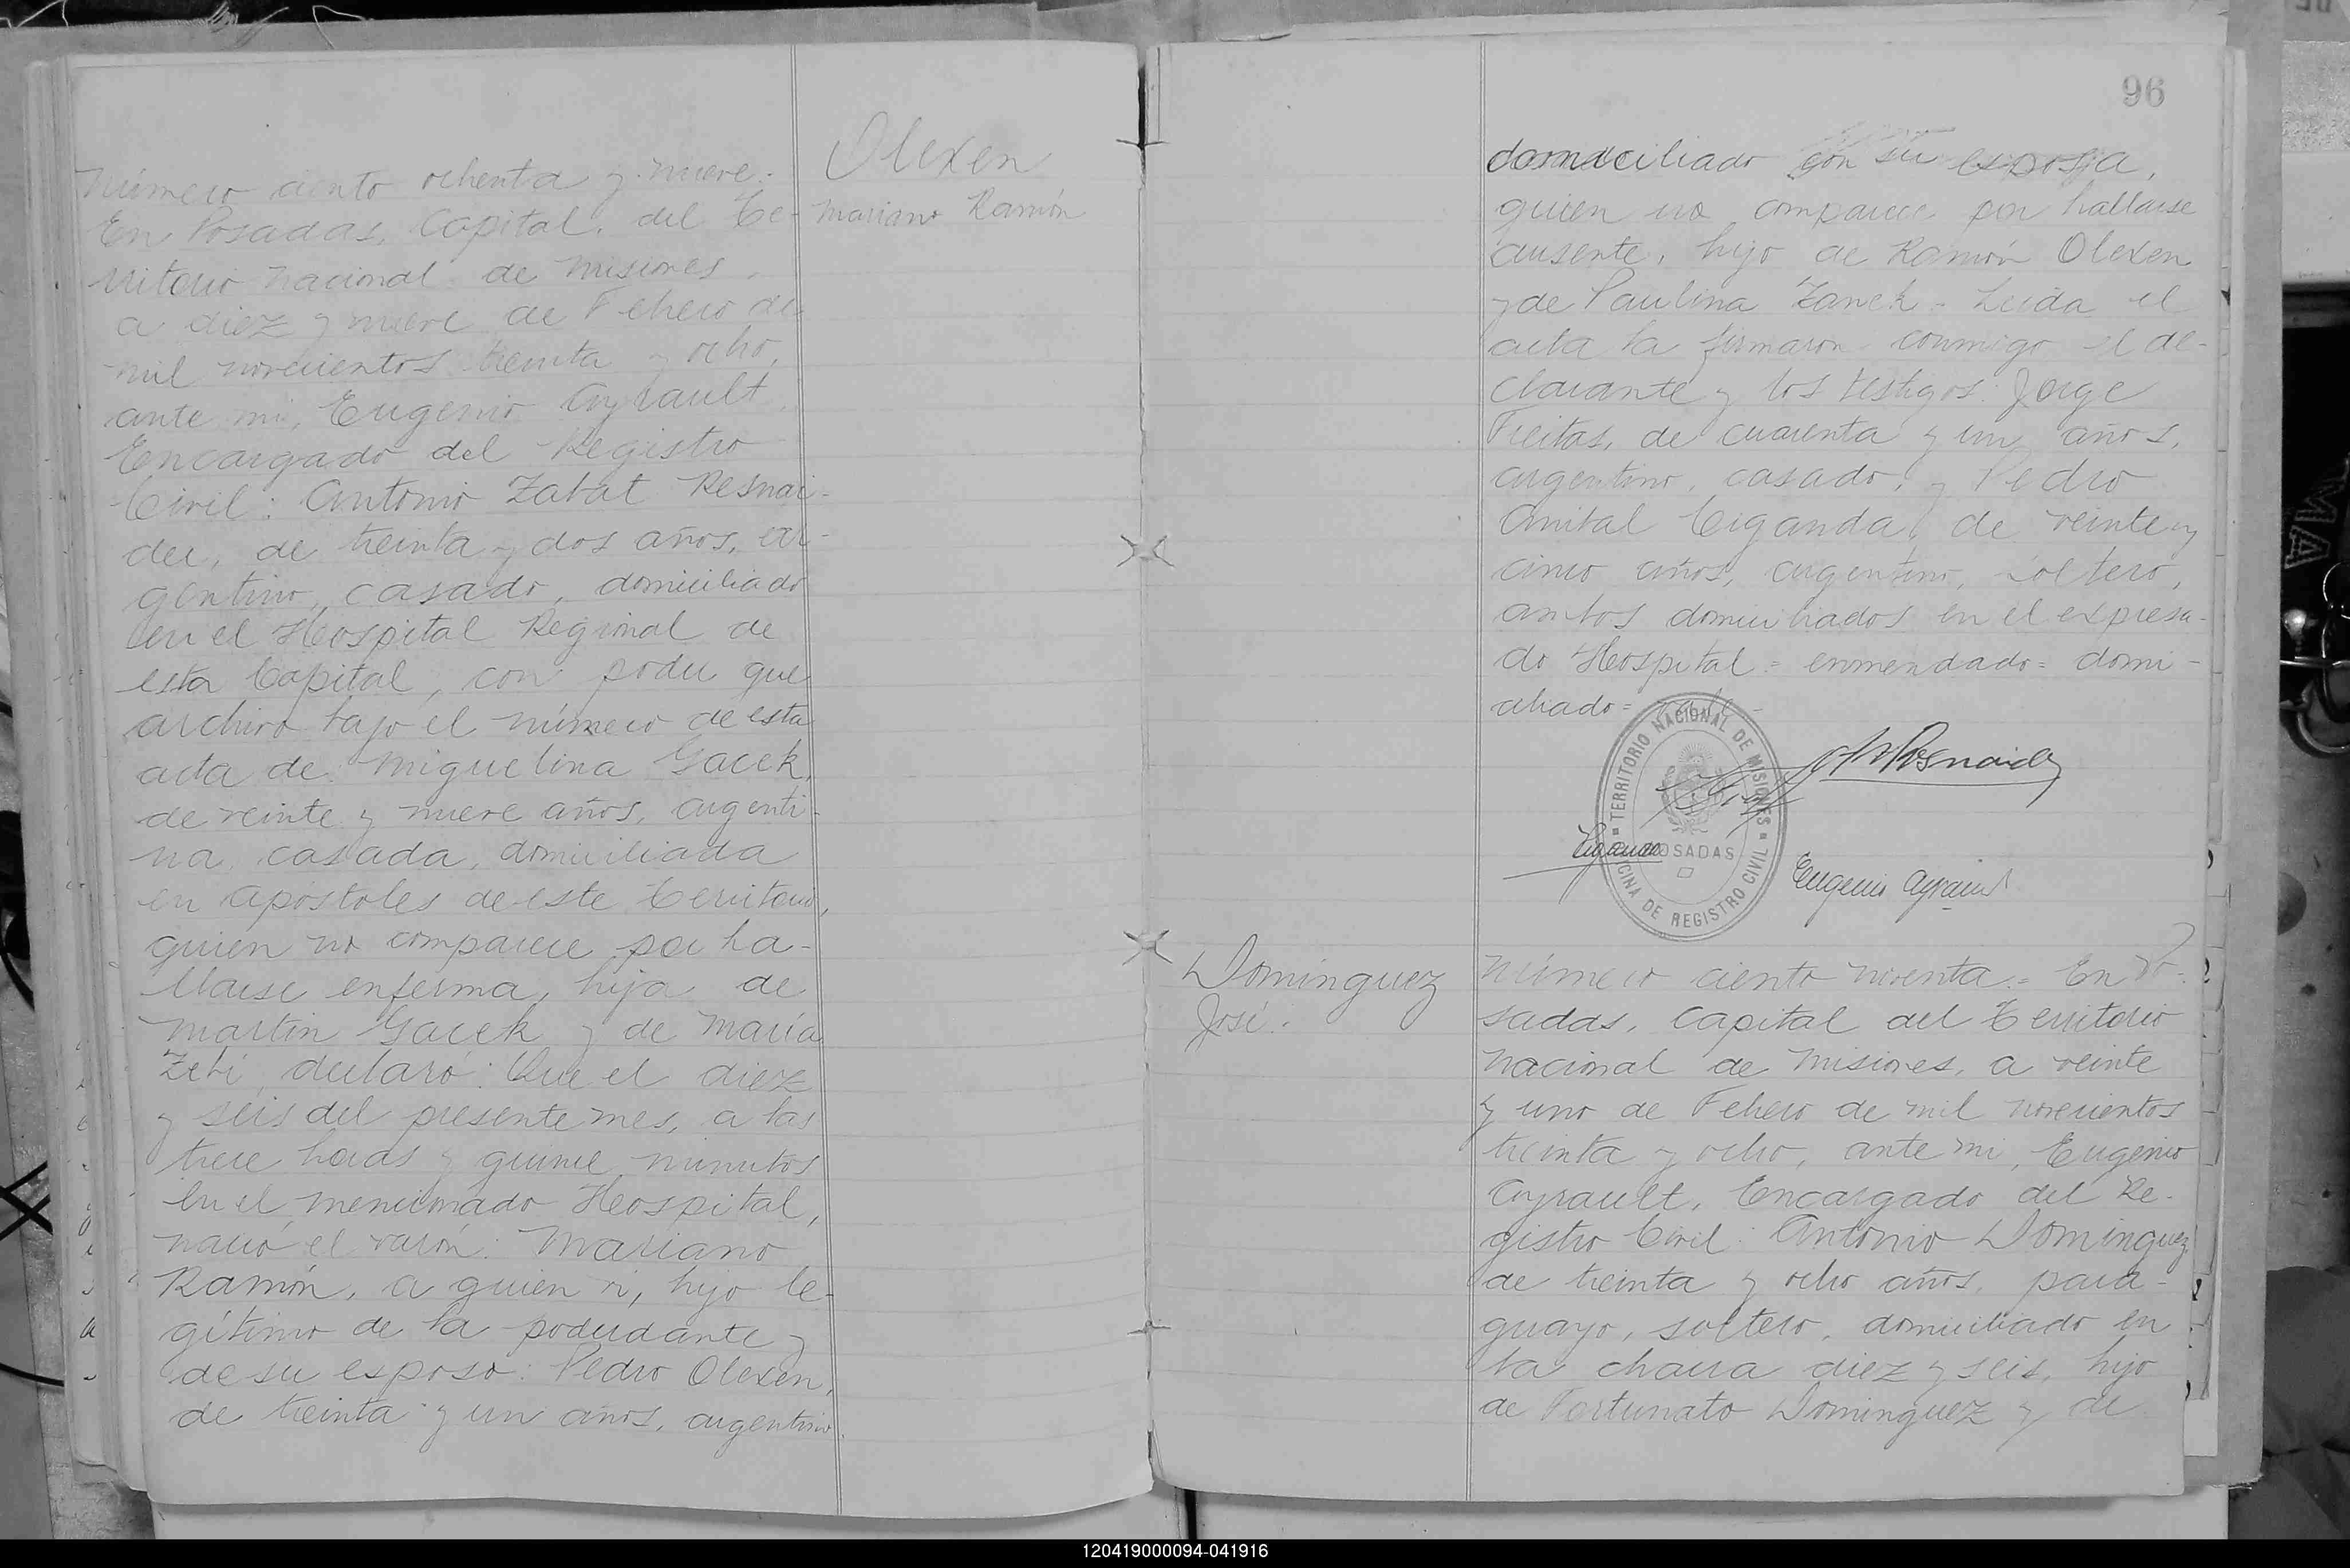 Olexen
Mariano Ramón
Número ciento ochenta y nueve.-
En Posadas, Capital, del Te-
rritorio Nacional de Misiones,
a diez y nueve de Febrero de
mil novecientos treinta y ocho,
ante mi, Eugenio Ayrault,
Encargado del Registro
Civil: Antonio Zabat Resnai-
der, de treinta y dos años, ar-
gentino, casado, domiciliado
en el Hospital Regional de
esta Capital, con poder que
archivo bajo el número de esta
acta de Miguelina Gacek,
de veinte y nueve años, argenti-
na, casada, domiciliada
en Apóstoles de este Territorio,
quien no comparece por ha-
llarse enferma, hija de
Martín Gacek y de María
Zebi, declaró: Que el diez
y seis del presente mes, a las
trece horas y quince minutos
en el mencionado Hospital,
nació el varón: Mariano
Ramón, a quien vi, hijo le-
gítimo de la poderdante y
de su esposo: Pedro Olexen,
de treinta y un años, argentino,
96
domiciliado con su esposa,
quien no comparece por hallarse
ausente, hijo de Ramón Olexen
y de Paulina Zanek.- Leída el
acta la firmaron conmigo el de-
clarante y los testigos: Jorge
Freitas, de cuarenta y un años,
argentino, casado, y Pedro
Anibal Ciganda, de veinte y
cinco años, argentino, soltero,
ambos domiciliados en el expresa-
do Hospital.= enmendado= domi-
ciliado= vale-
TERRITORIO NACIONAL DE MISIONES
POSADAS
OFICINA DE REGISTRO CIVIL
Resnaider
Ciganda
Eugenio Ayrault
Domínguez
José.
Número ciento noventa.- En Po-
sadas, Capital del Territorio
Nacional de Misiones, a veinte
y uno de Febrero de mil novecientos
treinta y ocho, ante mi, Eugenio
Ayrault, Encargado del Re-
gistro Civil: Antonio Domínguez,
de treinta y ocho años, para-
guayo, soltero, domiciliado en
la chacra diez y seis, hijo
de Fortunato Dominguez y de
120419000094-041916